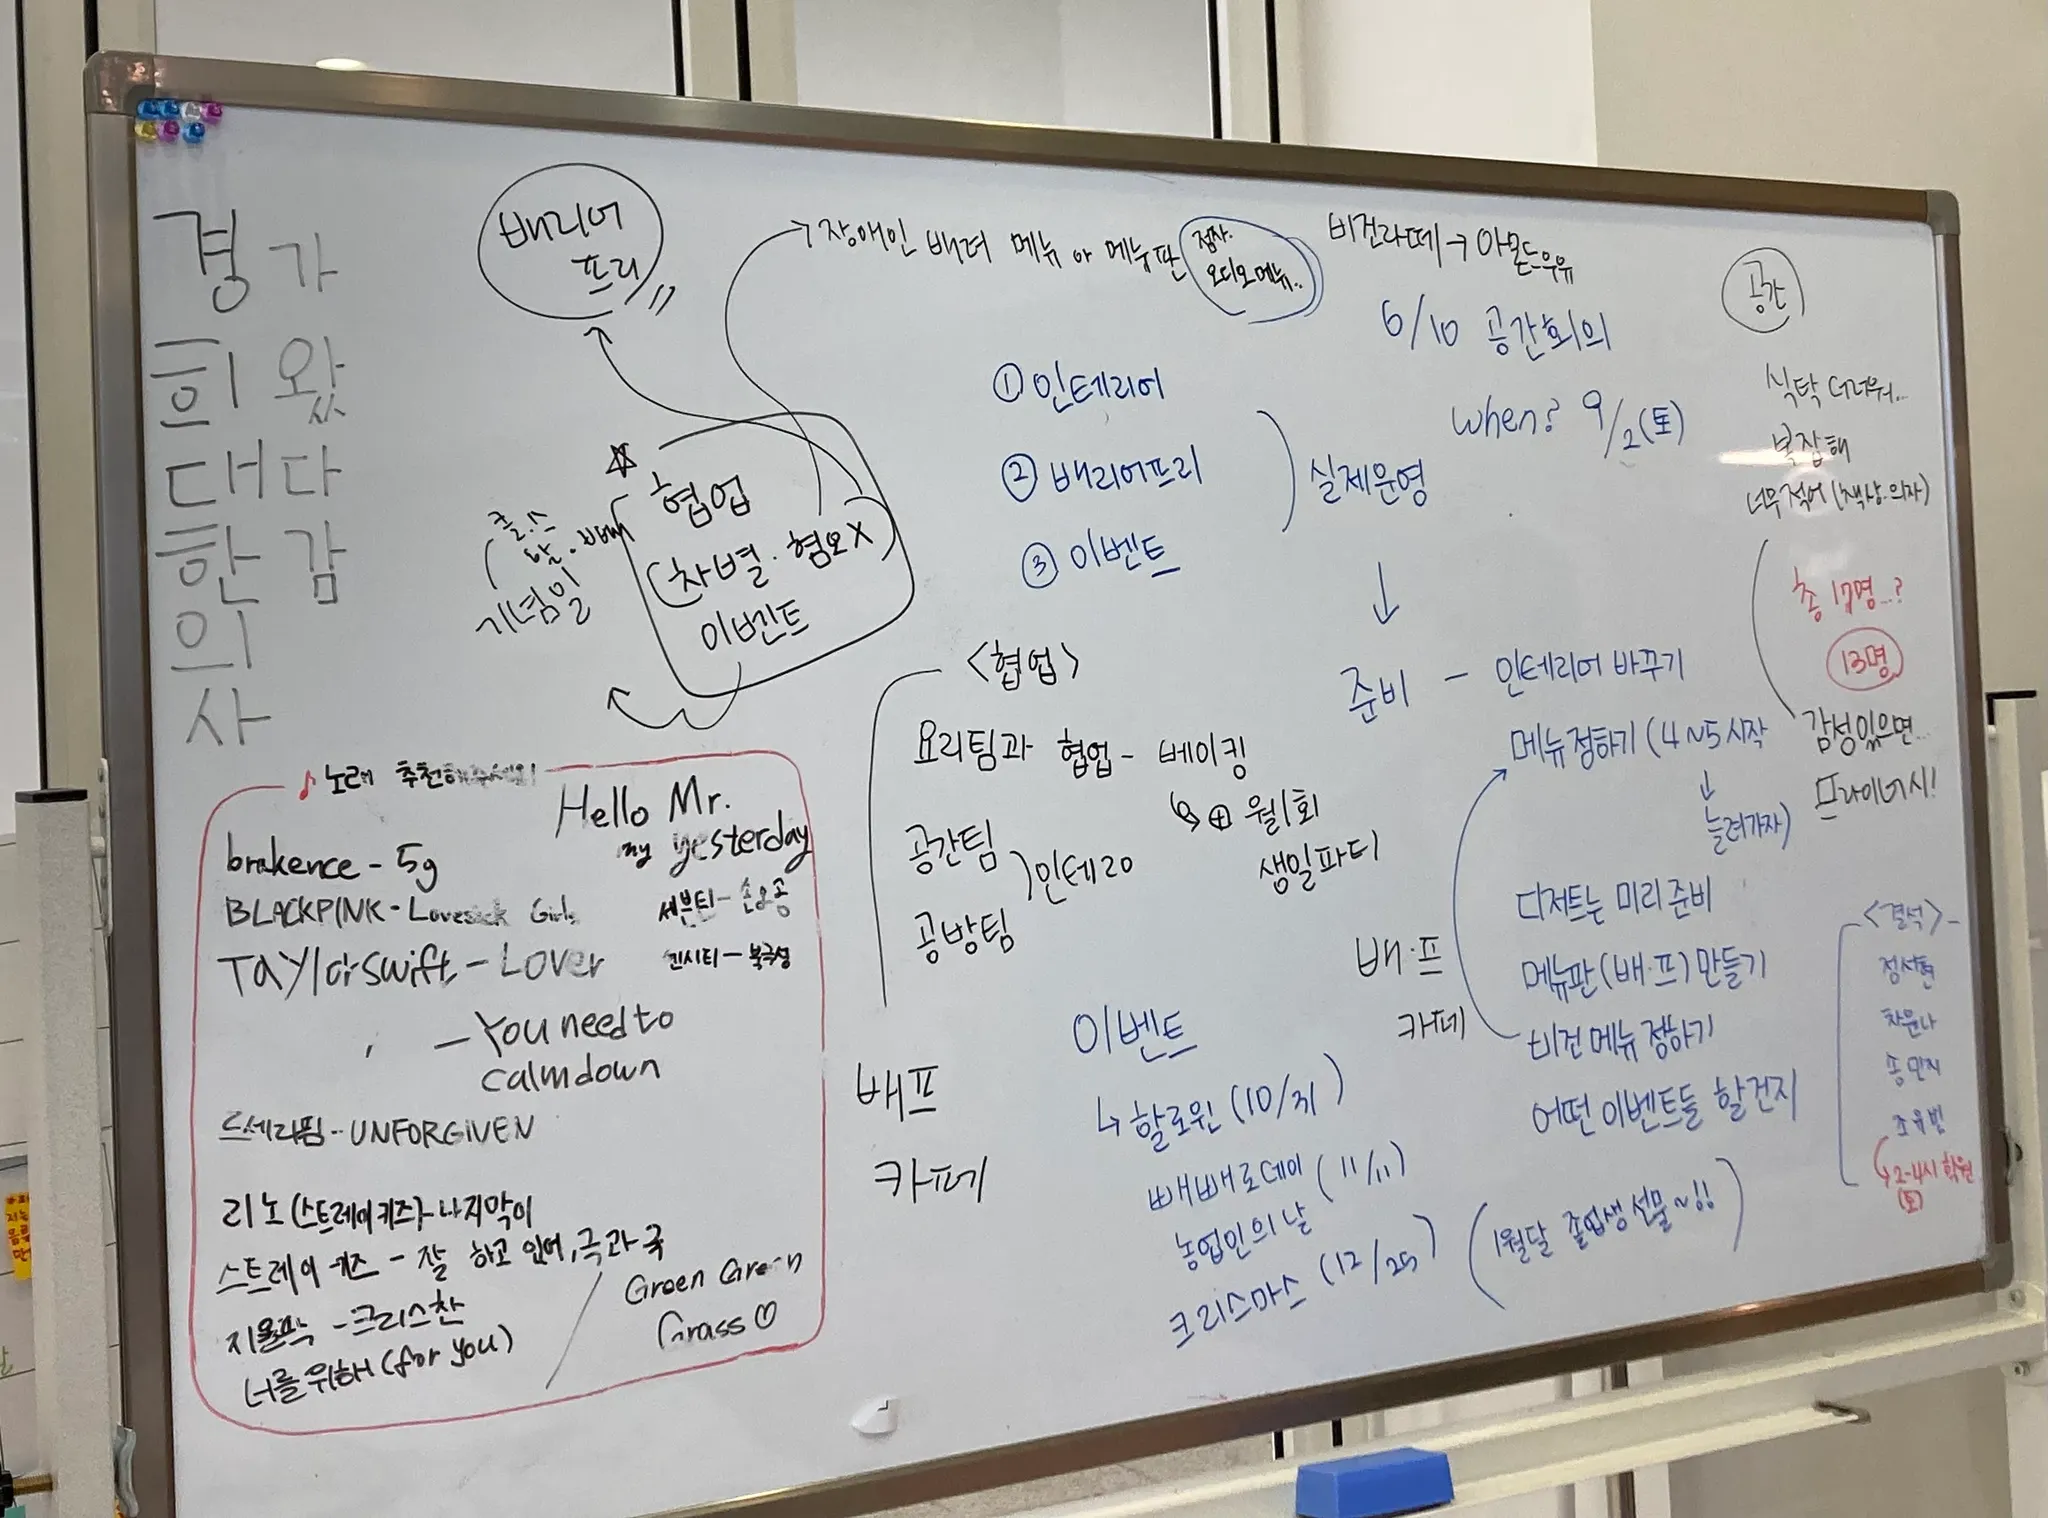 경희대한의사
가왔다감
배리어
프리
→ 장애인 배려 메뉴 or 메뉴판
점자.
오디오메뉴..
비건라떼→아몬드우유
6/10 공간회의
when? 9/2(토)
공간
식탁 더러워...
복잡해
너무 적어 (책상·의자)
총 17명...?
13명
감성있으면...
프라이너시!
① 인테리어
② 배리어프리
③ 이벤트
실제운영
☆
협업
(차별·혐오X)
이벤트
기념일
<협업>
요리팀과 협업 - 베이킹
↳ ⊕ 월1회
생일파티
공간팀
공방팀
)인테리어
배프
카페
준비 - 인테리어 바꾸기
메뉴정하기 (4~5시작
↓
늘려가자)
디저트는 미리 준비
메뉴판 (배·프) 만들기
비건 메뉴 정하기
어떤 이벤트들 할건지
배·프
카페
이벤트
↳ 할로윈 (10/31)
빼빼로데이 (11/11)
농업인의 날
크리스마스 (12/25)
(1월달 졸업생 선물~!!)
<결석>
정서현
차윤나
송민지
조유빈
↳ 2-4시 학원
(토)
♪ 노래 추천해주세요
Hello Mr.
my yesterday
brakence - 5g
BLACKPINK - Lovesick Girls
세븐틴 - 손오공
TAYlorswift - Lover
엔시티 - 북극성
- You need to
calmdown
르세라핌 - UNFORGIVEN
리노 (스트레이키즈) - 나지막이
스트레이 키즈 - 잘 하고 있어, 극과 극
지울팍 - 크리스찬
너를 위해 (for you)
Green Green
Grass♡